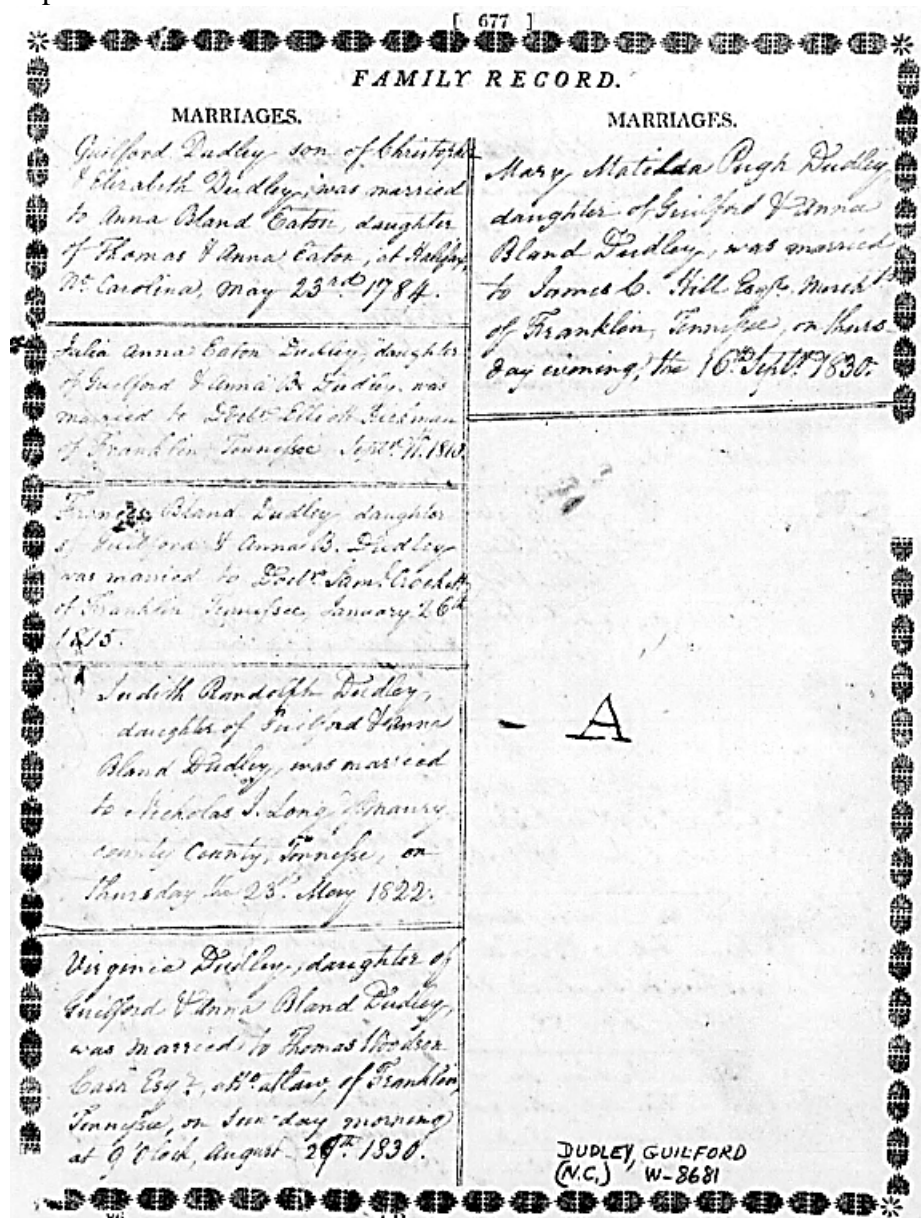 [ 677 ]
FAMILY RECORD.
MARRIAGES.
Guilford Dudley son of Christopher
& Elizabeth Dudley, was married
to Anna Bland Eaton, daughter
of Thomas & Anna Eaton, at Halifax,
No. Carolina, May 23rd 1784.
Julia Anna Eaton Dudley, daughter
of Guilford & Anna B. Dudley, was
married to Doctr.
of Franklin Tennessee Septr.
Frances Bland Dudley daughter
of Guilford & Anna B. Dudley
was married to Doctr. Saml. Crockett
of Franklin Tennessee, January 26th
1815.
Judith Randolph Dudley,
daughter of Guilford & Anna
Bland Dudley, was married
to Nicholas J. Long, of Maury
county County, Tennessee, on
thursday the 23d May 1822.
Virginia Dudley, daughter of
Guilford & Anna Bland Dudley,
was married to Thomas
Cash Esqr, at law, of Franklin,
Tennessee, on Sunday morning
at 9 O'Clock, August 29th 1830.
MARRIAGES.
Mary Matilda Pugh Dudley
daughter of Guilford & Anna
Bland Dudley, was married
to James C. Hill Esqr. Mercht.
of Franklin, Tennessee, on thurs-
day evening, the 16th Septr. 1830.
- A
DUDLEY, GUILFORD
(N.C.) W-8681